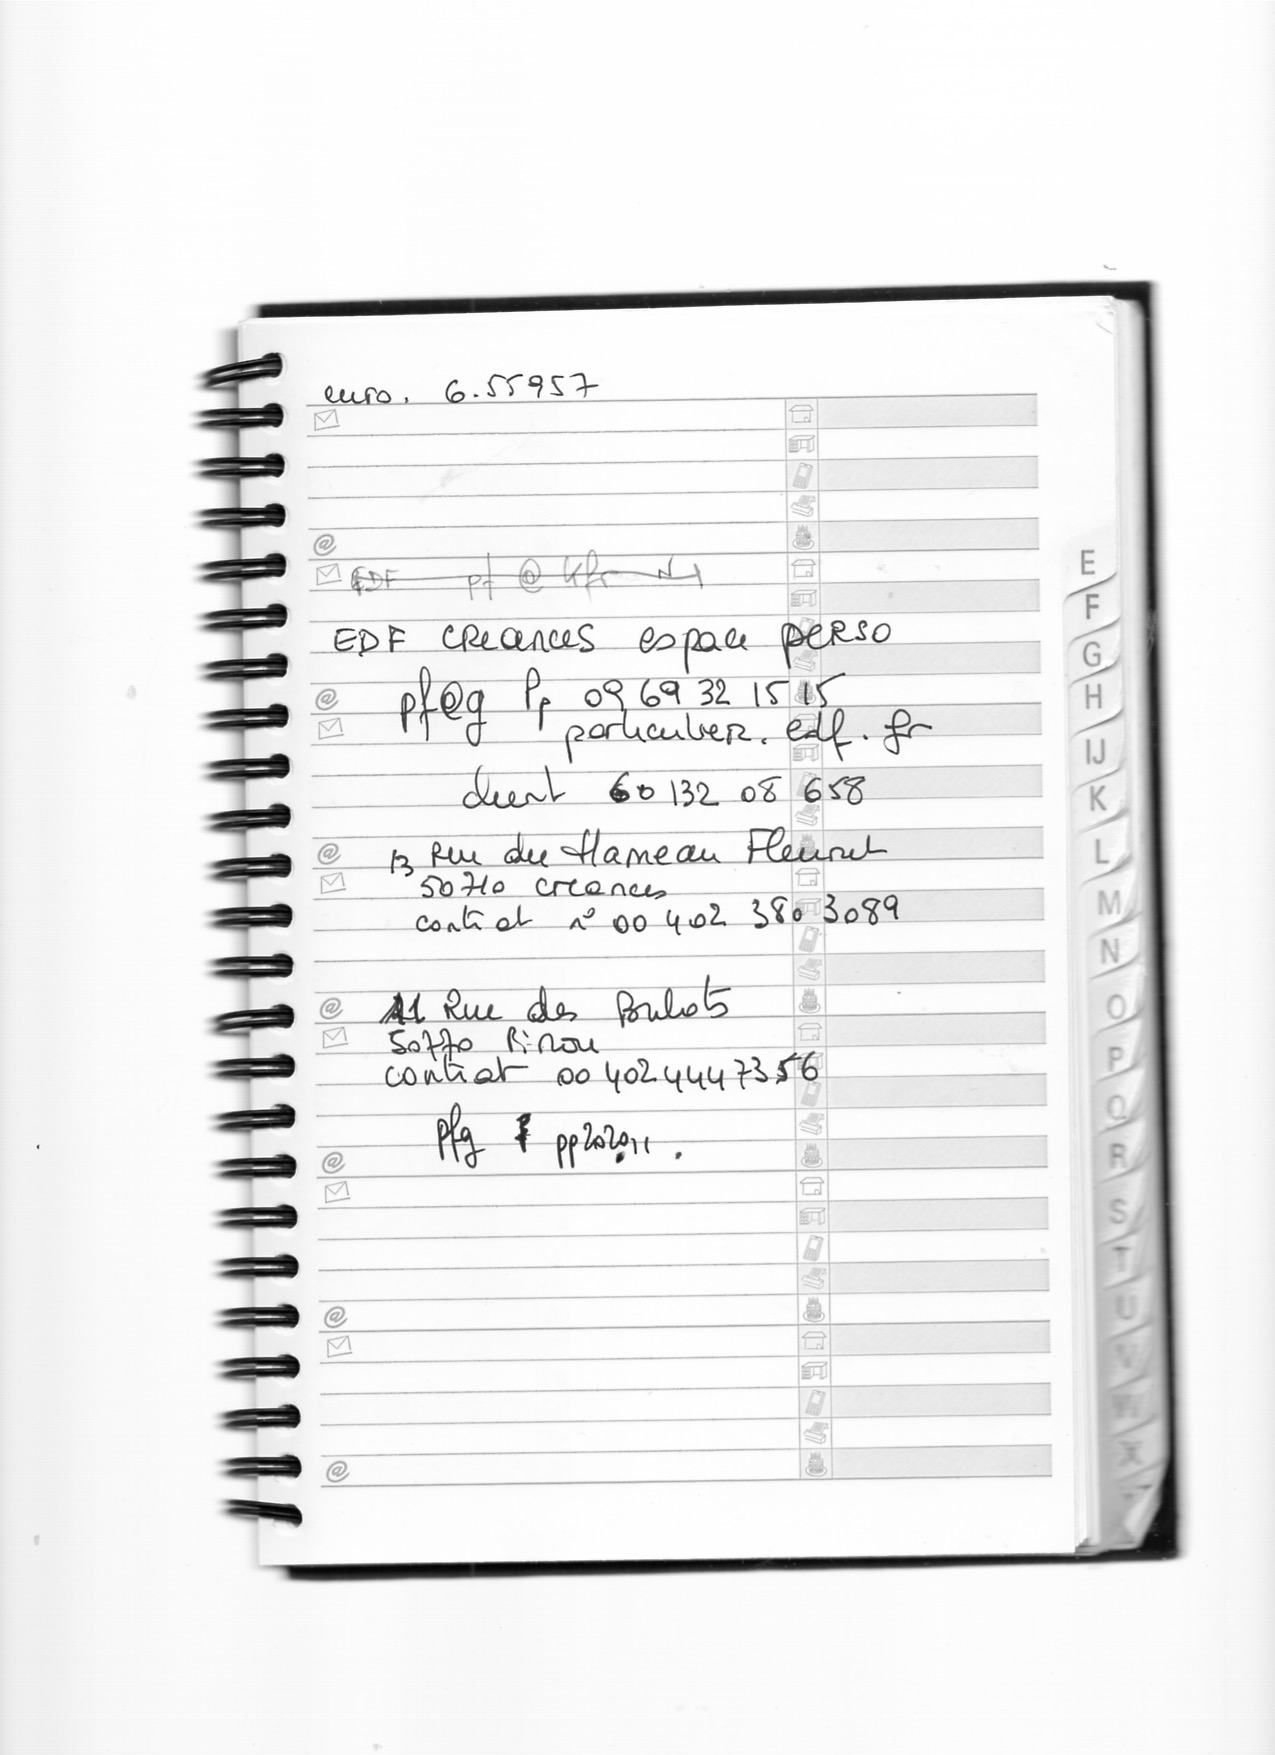 euro. 6.55957
EDF pf @
EDF CREANCES espace PERSO
pf@g Pp 09 69 32 15 15
particulier. edf. fr
client 60 132 08 658
13 Rue du Hameau Fleuret
50710 creances
contrat n° 00 402 380 3089
11 Rue des
50770 Pirou
contrat 00 402 444 7356
pfg pp202011.
E
F
G
H
IJ
K
L
M
N
O
P
Q
R
S
T
U
V
W
X